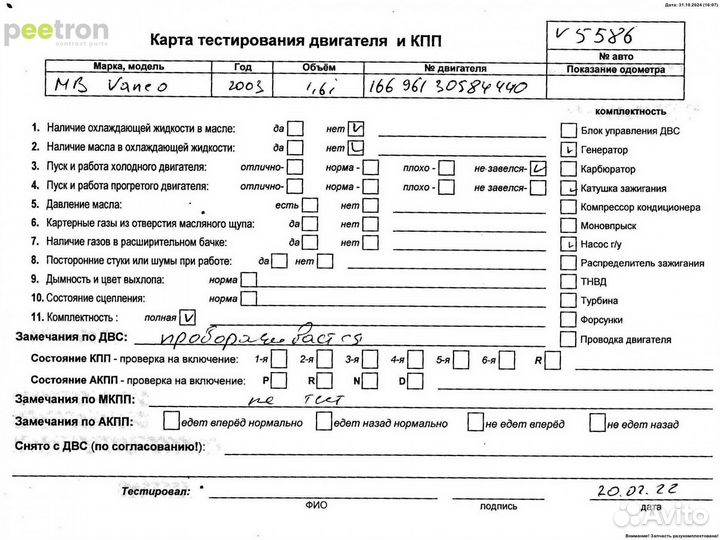 Дата: 31.10.2024 (16:07)
peetron
contract parts
Карта тестирования двигателя и КПП
V 5586
№ авто
Марка, модель Год Объём № двигателя Показание одометра
MB Vaneo 2003 1,6i 166 961 30584440
комплектность
1. Наличие охлаждающей жидкости в масле: да нет V
Блок управления ДВС
2. Наличие масла в охлаждающей жидкости: да нет V
Генератор
3. Пуск и работа холодного двигателя: отлично- норма - плохо - не завелся- V
Карбюратор
4. Пуск и работа прогретого двигателя: отлично- норма - плохо - не завелся-
Катушка зажигания
5. Давление масла: есть нет
Компрессор кондиционера
6. Картерные газы из отверстия масляного щупа: да нет
Моновпрыск
7. Наличие газов в расширительном бачке: да нет
Насос г/у
8. Посторонние стуки или шумы при работе: да нет
Распределитель зажигания
9. Дымность и цвет выхлопа: норма
ТНВД
10. Состояние сцепления: норма
Турбина
11. Комплектность : полная V
Форсунки
Замечания по ДВС:
Проводка двигателя
Состояние КПП - проверка на включение: 1-я 2-я 3-я 4-я 5-я 6-я R
Состояние АКПП - проверка на включение: P R N D
Замечания по МКПП: не тест
Замечания по АКПП: едет вперёд нормально едет назад нормально не едет вперёд не едет назад
Снято с ДВС (по согласованию!):
Тестировал: 20.02.22
ФИО подпись дата
Avito
Внимание! Запчасть разукомплектована!